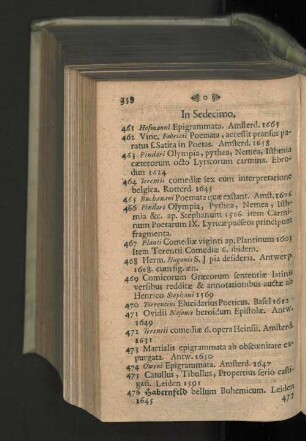 338 0
In Sedecimo.
461 Hofmanni Epigrammata. Amsterd. 1665
462 Vinc. Fabricii Poemata, accessit pransus pa-
ratus & Satira in Poetas. Amsterd. 1658
463 Pindari Olympia, pythea, Nemea, Isthmia
cæterorum octo Lyricorum carmina. Ebro-
dun 1624
464 Terentii comediæ sex cum interpretatione
belgica. Rotterd. 1645
465 Buchanani Poemata quæ extant. Amst. 1676
466 Pindari Olympia, Pythea, Nemea, Isth-
mia &c. ap. Stephanum 1566 item Carmi-
num Poetarum IX. Lyricæ poëseos principum
fragmenta.
467 Plauti Comediæ viginti ap. Plantinum 1605
Item Terentii Comediæ 6. ibidem.
468 Herm. Hugonis S. J pia desideria. Antwerp
1628. cum fig. æn.
469 Comicorum Græcorum sententiæ latinis
versibus redditæ & annotationibus auctæ ab
Henrico Stephani 1569
470 Torrentini Elucidarius Poeticus. Basel 1612
471 Ovidii Nasonis heroidum Epistolæ. Antw.
1649
472 Terentii comediæ 6. opera Heinsii. Amsterd.
1631
473 Martialis epigrammata ab obscœnitate ex-
purgata. Antw. 1650
474 Oweni Epigrammata. Amsterd. 1647
475 Catullus, Tibullus, Propertius serio casti-
gati. Leiden 1591
476 Habernfeld bellum Bohemicum. Leiden
1645 477